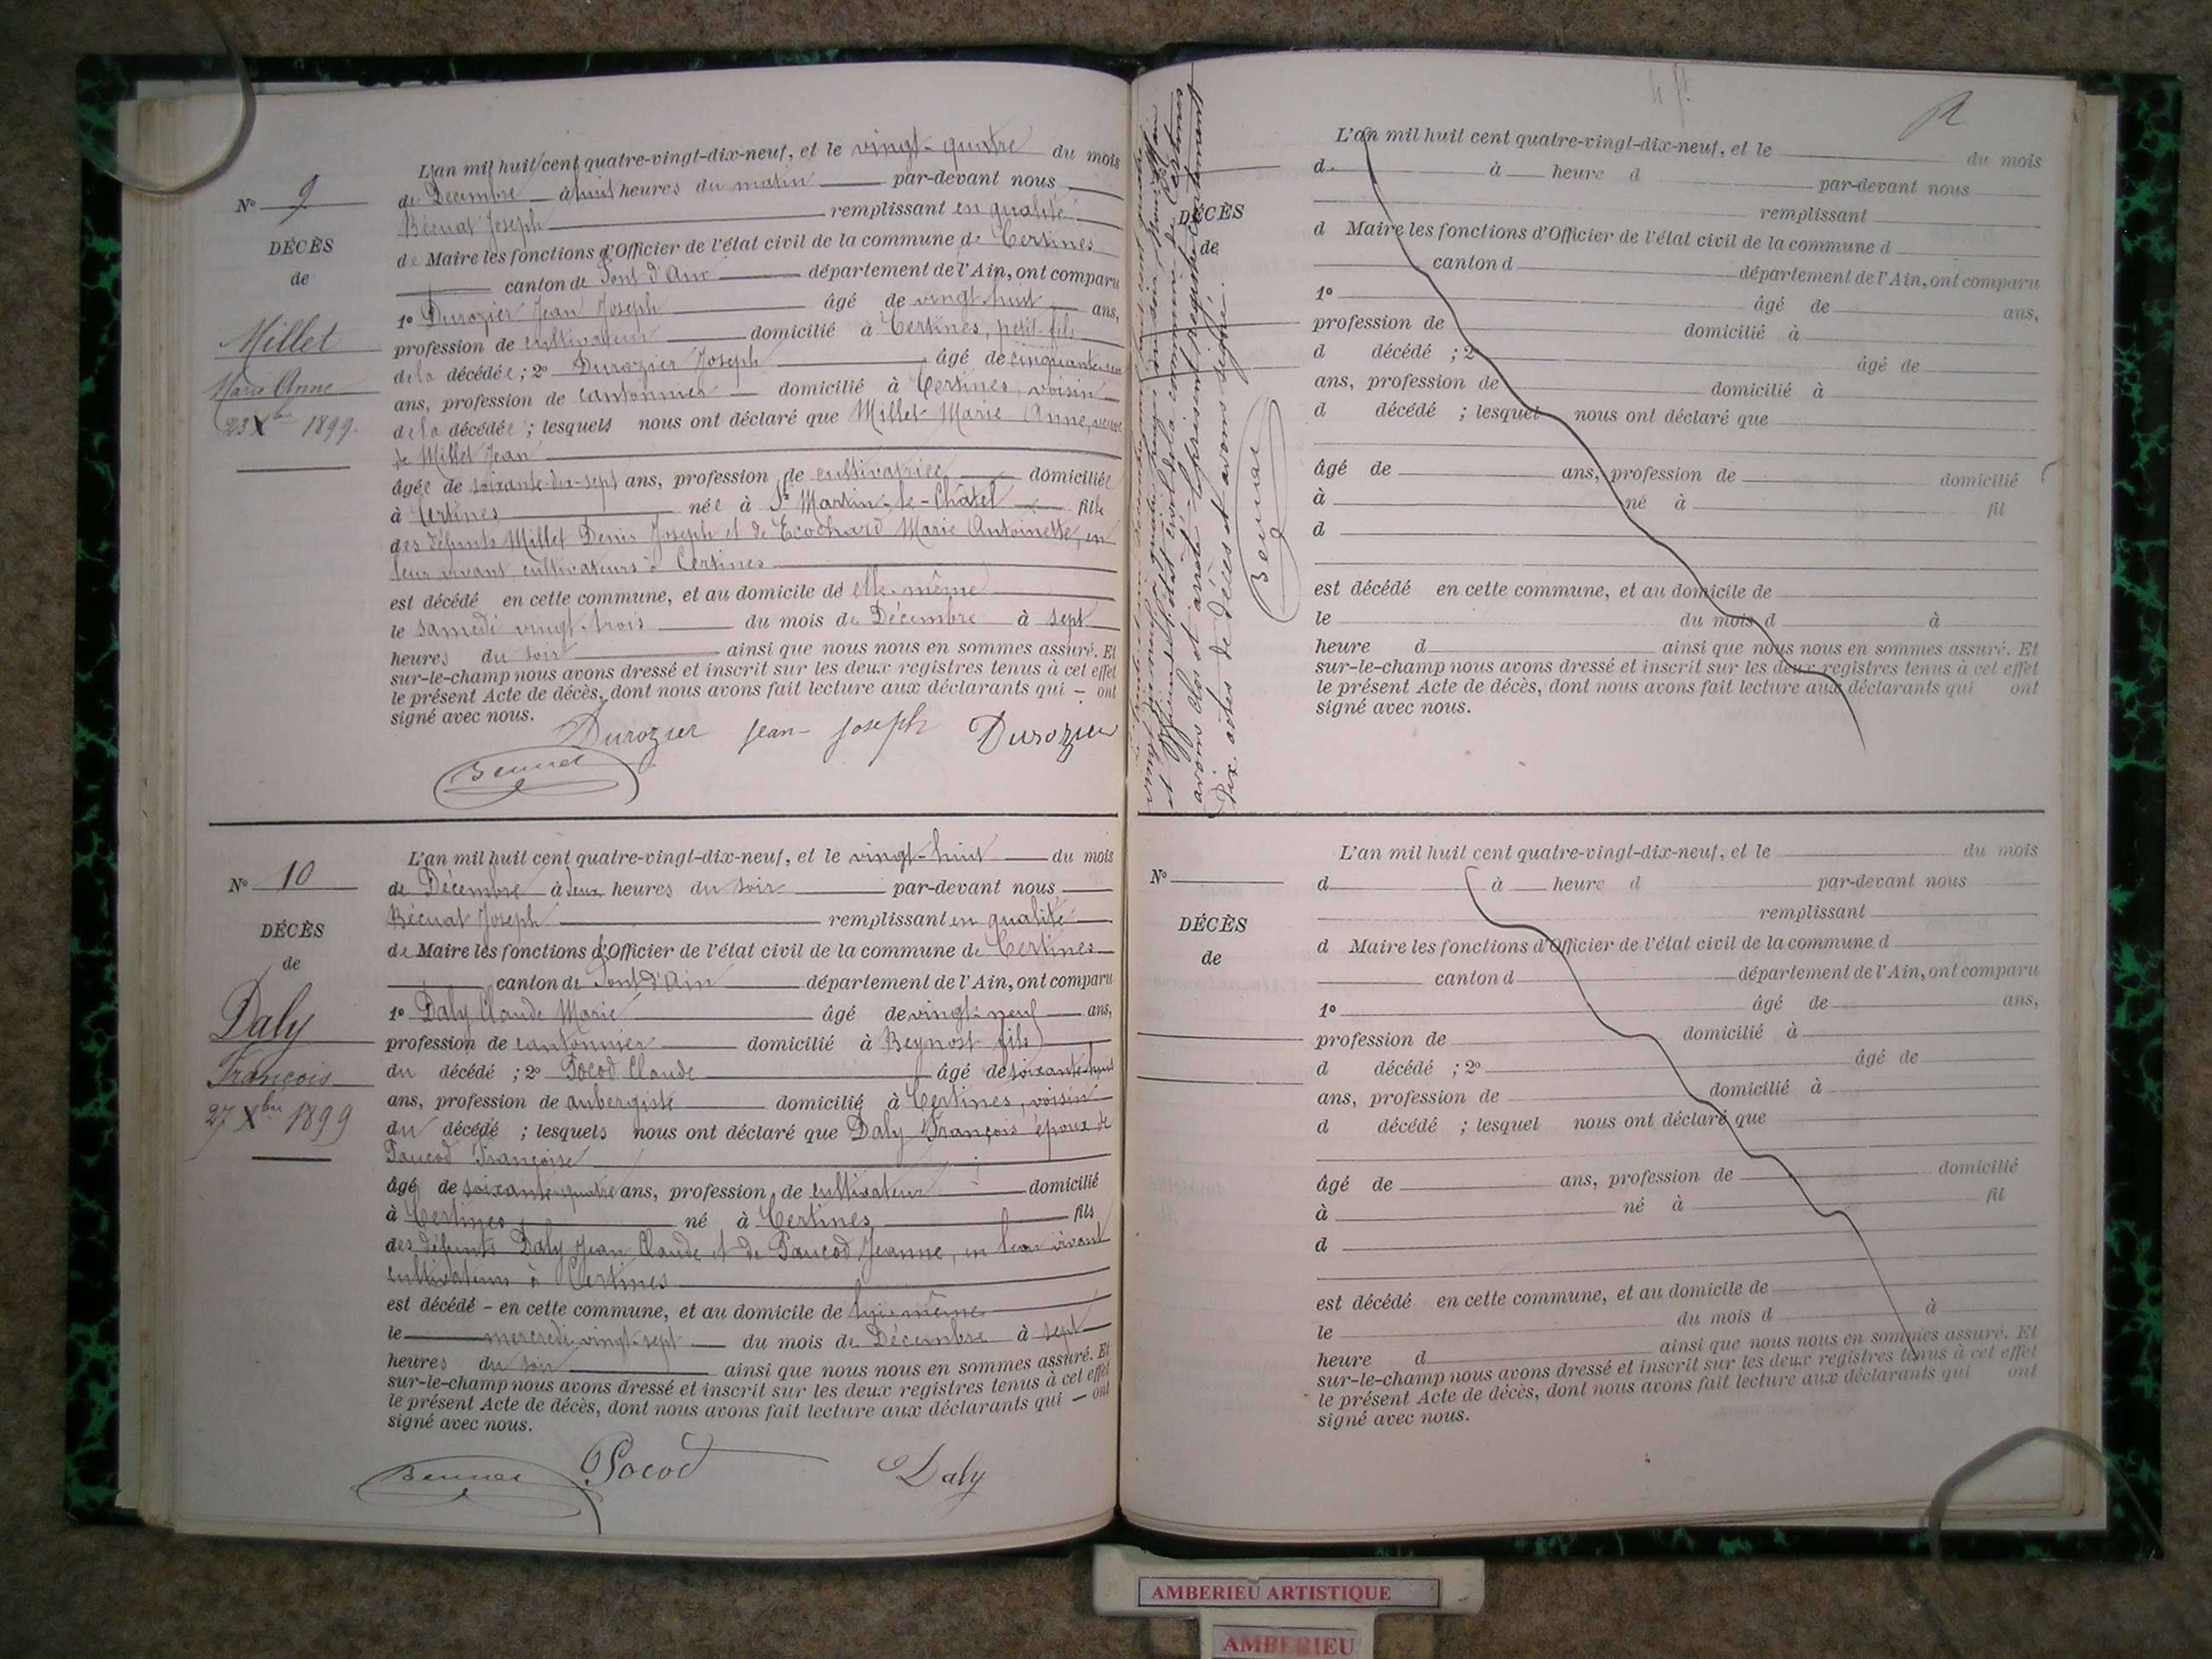 N° 9
DÉCÈS
de
Millet
Marie Anne
23 Xbre 1899.
L'an mil huit cent quatre-vingt-dix-neuf, et le vingt-quatre du mois
de Décembre à huit heures du matin par-devant nous
Bécuat Joseph remplissant en qualité
de Maire les fonctions d'Officier de l'état civil de la commune de Certines
canton de Pont d'Ain département de l'Ain, ont comparu
1° Durozier Jean Joseph âgé de vingt-huit ans,
profession de cultivateur domicilié à Certines, petit-fils
de la décédée ; 2° Durozier Joseph âgé de cinquante-un
ans, profession de cantonnier domicilié à Certines, voisin
de la décédée ; lesquels nous ont déclaré que Millet Marie Anne, veuve
de Millet Jean
âgée de soixante-dix-sept ans, profession de cultivatrice domiciliée
à Certines née à St Martin-le-Châtel fille
des défunts Millet Denis Joseph et de Ecochard Marie Antoinette, en
leur vivant cultivateurs à Certines
est décédé en cette commune, et au domicile de elle-même
le samedi vingt-trois du mois de Décembre à sept
heures du soir ainsi que nous nous en sommes assuré. Et
sur-le-champ nous avons dressé et inscrit sur les deux registres tenus à cet effet
le présent Acte de décès, dont nous avons fait lecture aux déclarants qui – ont
signé avec nous.
Durozier Jean-Joseph Durozier
Bécuat
N° 10
DÉCÈS
de
Daly
François
27 Xbre 1899
L'an mil huit cent quatre-vingt-dix-neuf, et le vingt-huit du mois
de Décembre à deux heures du soir par-devant nous
Bécuat Joseph remplissant en qualité
de Maire les fonctions d'Officier de l'état civil de la commune de Certines
canton de Pont d'Ain département de l'Ain, ont comparu
1° Daly Claude Marie âgé de vingt-neuf ans,
profession de cantonnier domicilié à Beynost fils
du décédé ; 2° Pocod Claude âgé de soixante-huit
ans, profession de aubergiste domicilié à Certines, voisin
du décédé ; lesquels nous ont déclaré que Daly François époux de
Paucod Françoise
âgé de soixante-quatre ans, profession de cultivateur domicilié
à Certines né à Certines fils
des défunts Daly Jean Claude et de Paucod Jeanne, en leur vivant
cultivateurs à Certines
est décédé - en cette commune, et au domicile de lui-même
le mercredi vingt-sept du mois de Décembre à sept
heures du soir ainsi que nous nous en sommes assuré. Et
sur-le-champ nous avons dressé et inscrit sur les deux registres tenus à cet effet
le présent Acte de décès, dont nous avons fait lecture aux déclarants qui – ont
signé avec nous.
Bécuat Pocod Daly
et Officier de l'état civil de la commune de Certines
avons clos et arrêté le présent registre contenant
Dix actes de décès et avons signé.
Bécuat
DÉCÈS
de
L'an mil huit cent quatre-vingt-dix-neuf, et le du mois
d à heure d par-devant nous
remplissant
d Maire les fonctions d'Officier de l'état civil de la commune d
canton d département de l'Ain, ont comparu
1° âgé de ans,
profession de domicilié à
d décédé ; 2° âgé de
ans, profession de domicilié à
d décédé ; lesquel nous ont déclaré que
âgé de ans, profession de domicilié
à né à fil
d
est décédé en cette commune, et au domicile de
le du mois d à
heure d ainsi que nous nous en sommes assuré. Et
sur-le-champ nous avons dressé et inscrit sur les deux registres tenus à cet effet
le présent Acte de décès, dont nous avons fait lecture aux déclarants qui ont
signé avec nous.
N°
DÉCÈS
de
L'an mil huit cent quatre-vingt-dix-neuf, et le du mois
d à heure d par-devant nous
remplissant
d Maire les fonctions d'Officier de l'état civil de la commune d
canton d département de l'Ain, ont comparu
1° âgé de ans,
profession de domicilié à
d décédé ; 2° âgé de
ans, profession de domicilié à
d décédé ; lesquel nous ont déclaré que
âgé de ans, profession de domicilié
à né à fil
d
est décédé en cette commune, et au domicile de
le du mois d à
heure d ainsi que nous nous en sommes assuré. Et
sur-le-champ nous avons dressé et inscrit sur les deux registres tenus à cet effet
le présent Acte de décès, dont nous avons fait lecture aux déclarants qui ont
signé avec nous.
AMBERIEU ARTISTIQUE
AMBERIEU